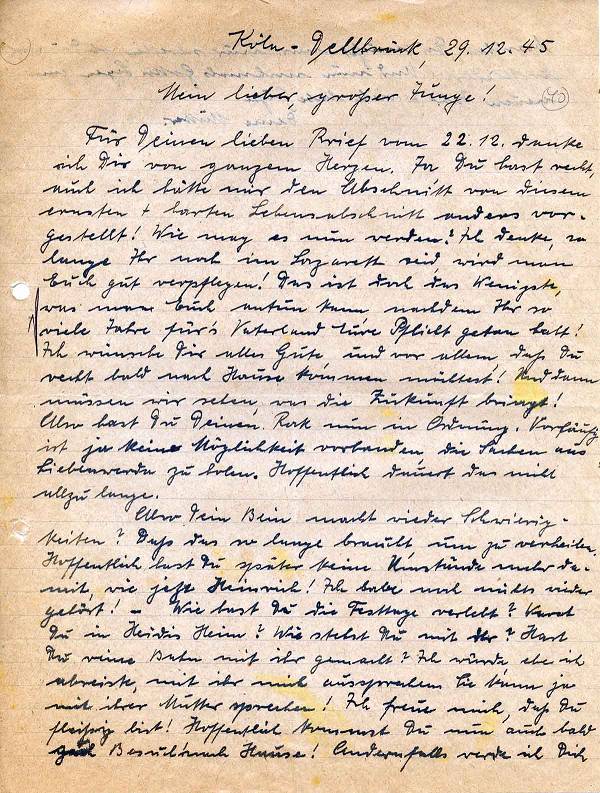 Köln-Dellbrück, 29.12.45
40
Mein lieber, großer Junge!
Für Deinen lieben Brief vom 22.12. danke
ich Dir von ganzem Herzen. Ja, Du hast recht,
auch ich hätte mir den Abschnitt von diesem
ernsten + harten Lebensabschnitt anders vor-
gestellt! Wie mag es nun werden? Ich denke, so
lange Ihr noch im Lazarett seid, wird man
Euch gut verpflegen! Das ist doch das Wenigste,
was man Euch antun kann, nachdem Ihr so
viele Jahre für's Vaterland Eure Pflicht getan habt!
Ich wünsche Dir alles Gute und vor allem, daß Du
recht bald nach Hause kommen mültest! Und dann
müssen wir sehen, was die Zukunft bringt!
Also hast Du Deinen Rock nun in Ordnung. Vorläufig
ist ja keine Möglichkeit vorhanden die Sachen aus
Liebenwerda zu holen. Hoffentlich dauert das nicht
allzu lange.
Also Dein Bein macht wieder Schwierig-
keiten? Daß das so lange braucht um zu verheilen.
Hoffentlich hast Du später keine Umstände mehr da-
mit, wie jetzt Heinrich! Ich habe noch nichts wieder
gehört! - Wie hast Du die Festtage verlebt? Warst
Du in Heidis Heim? Wie stehst Du mit ihr? Hast
Du reine Bahn mit ihr gemacht? Ich würde, ehe ich
abreiste, mit ihr mich aussprechen. Sie kann ja
mit ihrer Mutter sprechen! Ich freue mich, daß Du
fleißig bist! Hoffentlich kommst Du nun auch bald
Besuch nach Hause! Andernfalls werde ich Dich